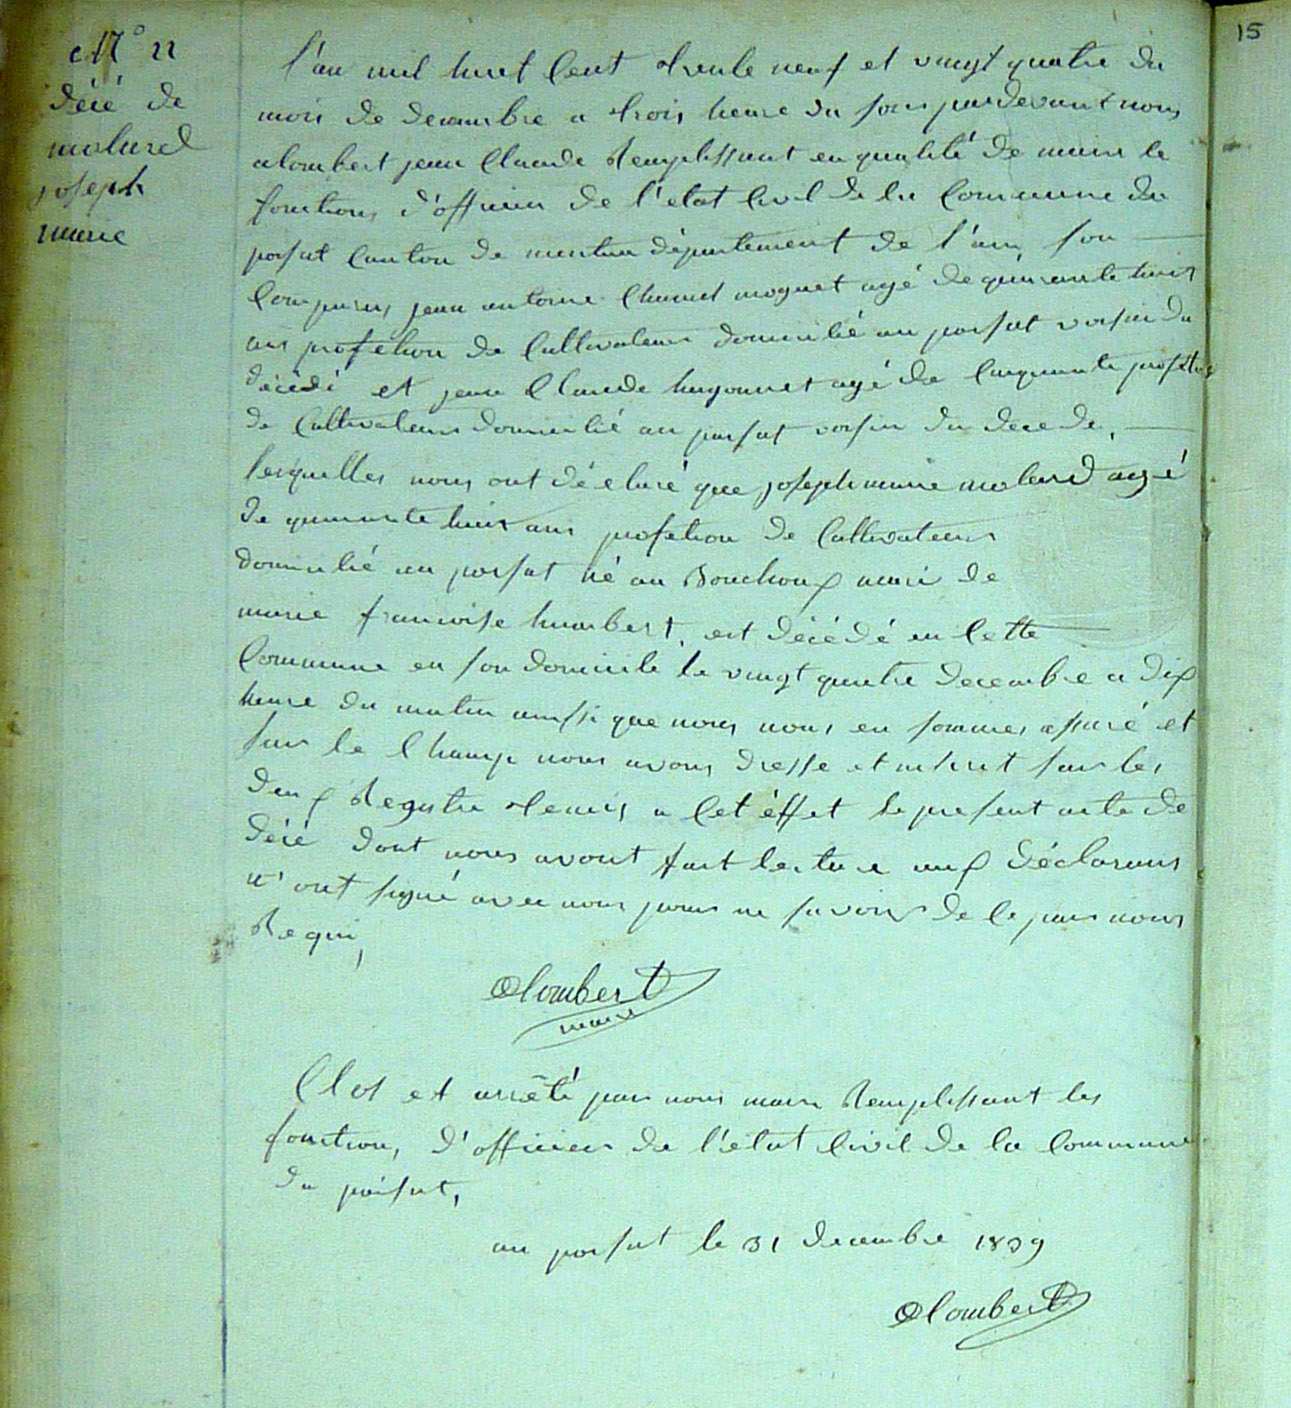 15
N° 22
décé de
molard
joseph
marie
l'an mil huit Cent trente neuf et vingt quatre du
mois de decembre a trois heure du soir pardevant nous
alombert jean Claude Remplissant en qualité de maire le
fonctions d'officier de l'etat Civil de la Commune du
poisat Canton de nantua département de l'ain son
Comparus jean antoine Chanel moguet agé de quarante trois
ans profetion de Cultivateur domicilié au poisat voisin du
décédé et jean Claude hugonnet agé de Cinquante profetion
de Cultivateur domicilié au poisat voisin du decede,
lesquelles nous ont déclaré que joseph marie molard agé
de quarante huit ans profetion de Cultivateur
domicilié au poisat né au Bouchoux mari de
marie francoise humbert, est décédé en Cette
Commune en son domicile le vingt quatre decembre a dix
heure du matin ainsi que nous nous en sommes assuré et
sur le Champ nous avons dresse et inscrit sur les
deux Registre tenus a Cet éffet le present acte de
décé dont nous avont fait lecture aux déclarans
n'ont signé avec nous pour ne savoir de Ce par nous
Requi,
alombert
maire
Clos et arrêté par nous maire Remplissant les
fonction, d'officier de l'état Civil de la Commune
du poisat,
au poisat le 31 decembre 1839
alombert